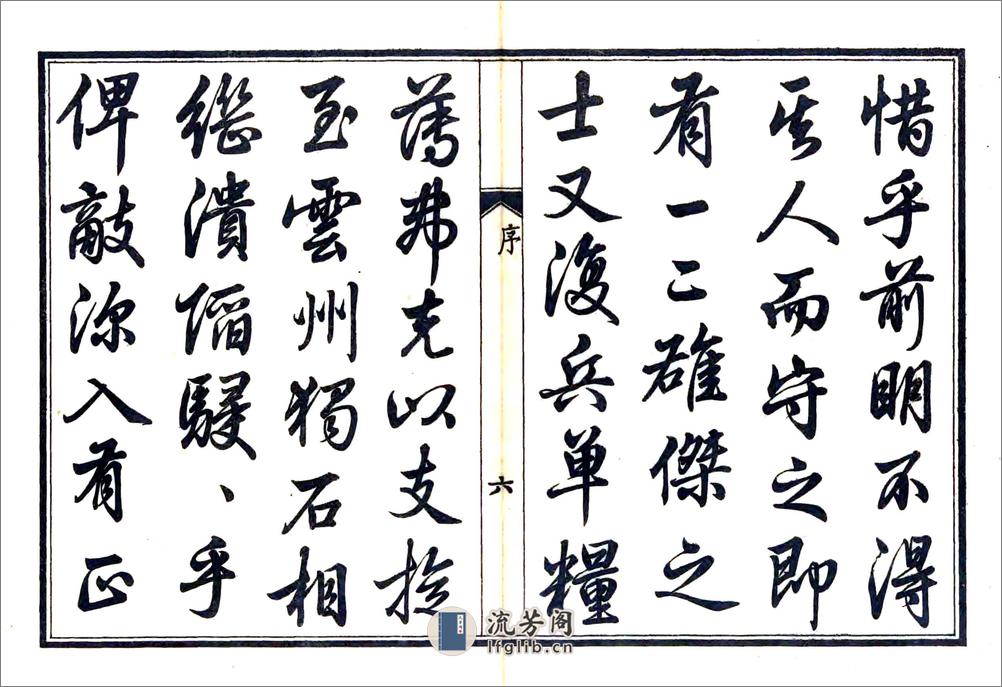 惜乎前明不得
其人而守之即
有一二雄傑之
士又復兵单糧
序
六
薄弗克以支扵
至雲州獨石相
継潰陷駸、乎
俾敵深入有正
流芳阁
lfglib.cn